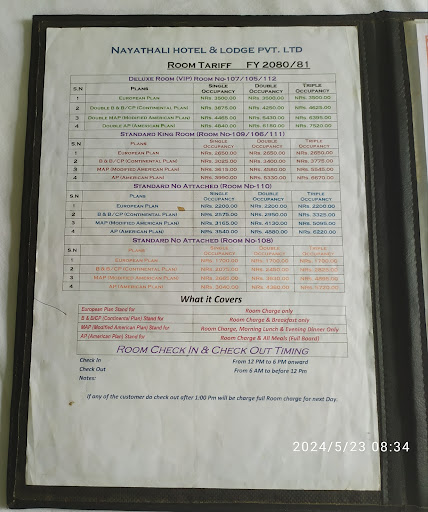 NAYATHALI HOTEL & LODGE PVT. LTD
ROOM TARIFF FY 2080/81
DELUXE ROOM (VIP) ROOM NO-107/105/112
S.N PLANS SINGLE OCCUPANCY DOUBLE OCCUPANCY TRIPLE OCCUPANCY
1 EUROPEAN PLAN NRS. 3500.00 NRS. 3500.00 NRS. 3500.00
2 DOUBLE B & B/CP (CONTINENTAL PLAN) NRS. 3875.00 NRS. 4250.00 NRS. 4625.00
3 DOUBLE MAP (MODIFIED AMERICAN PLAN) NRS. 4465.00 NRS. 5430.00 NRS. 6395.00
4 DOUBLE AP (AMERICAN PLAN) NRS. 4840.00 NRS. 6180.00 NRS. 7520.00
STANDARD KING ROOM (ROOM NO-109/106/111)
S.N PLANS SINGLE OCCUPANCY DOUBLE OCCUPANCY TRIPLE OCCUPANCY
1 EUROPEAN PLAN NRS. 2650.00 NRS. 2650.00 NRS. 2650.00
2 B & B/CP (CONTINENTAL PLAN) NRS. 3025.00 NRS. 3400.00 NRS. 3775.00
3 MAP (MODIFIED AMERICAN PLAN) NRS. 3615.00 NRS. 4580.00 NRS. 5545.00
4 AP (AMERICAN PLAN) NRS. 3990.00 NRS. 5330.00 NRS. 6670.00
STANDARD NO ATTACHED (ROOM NO-110)
S.N PLANS SINGLE OCCUPANCY DOUBLE OCCUPANCY TRIPLE OCCUPANCY
1 EUROPEAN PLAN NRS. 2200.00 NRS. 2200.00 NRS. 2200.00
2 B & B/CP (CONTINENTAL PLAN) NRS. 2575.00 NRS. 2950.00 NRS. 3325.00
3 MAP (MODIFIED AMERICAN PLAN) NRS. 3165.00 NRS. 4130.00 NRS. 5095.00
4 AP (AMERICAN PLAN) NRS. 3540.00 NRS. 4880.00 NRS. 6220.00
STANDARD NO ATTACHED (ROOM NO-108)
S.N PLANS SINGLE OCCUPANCY DOUBLE OCCUPANCY TRIPLE OCCUPANCY
1 EUROPEAN PLAN NRS. 1700.00 NRS. 1700.00 NRS.
2 B & B/CP (CONTINENTAL PLAN) NRS. NRS. NRS.
3 MAP (MODIFIED AMERICAN PLAN) NRS. NRS. NRS.
4 AP (AMERICAN PLAN) NRS. 3040.00 NRS. 4380.00 NRS. 5720.00
What it Covers
European Plan Stand for Room Charge only
B & B/CP (Continental Plan) Stand for Room Charge & Breakfast only
MAP (Modified American Plan) Stand for Room Charge, Morning Lunch & Evening Dinner Only
AP (American Plan) Stand for Room Charge & All Meals (Full Board)
ROOM CHECK IN & CHECK OUT TIMING
Check In From 12 PM to 6 PM onward
Check Out From 6 AM to before 12 Pm
Notes:
If any of the customer do check out after 1:00 Pm will be charge full Room charge for next Day.
2024/5/23 08:34